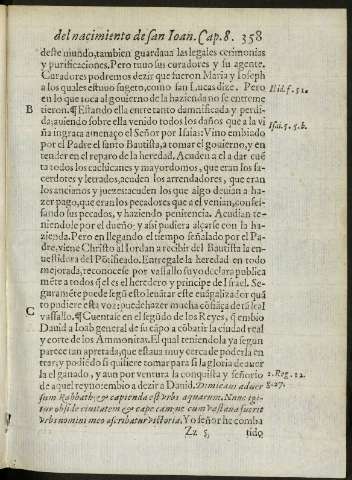 del nacimiento de san Ioan. Cap. 8. 358
deste mundo, tambien guardaua las legales cerimonias
y purificaciones. Pero tuuo sus curadores y su agente.
Curadores podremos dezir que fueron Maria y Ioseph
a los quales estuuo sugeto, como san Lucas dize. Pero
Ibid. f. 51.
en lo que toca al gouierno de la hazienda no se entreme
B
tieron. ¶ Estando ella entretanto damnificada y perdi-
da; auiendo sobre ella venido todos los daños que a la vi
ña ingrata amenaço el Señor por Isaias: Vino embiado
Isai. 5. 5. b.
por el Padre el santo Bautista, a tomar el gouierno, y en
tender en el reparo de la heredad. Acuden a el a dar cuē
ta todos los cachicanes y mayordomos, que eran los sa-
cerdotes y letrados; acuden los arrendadores, que eran
los ancianos y juezes: acuden los que algo deuian a ha-
zer pago, que eran los pecadores que a el venian, confes-
sando sus pecados, y haziendo penitencia. Acudian te-
niendole por el dueño y assi pudiera alçarse con la ha-
zienda. Pero en llegando el tiempo señalado por el Pa-
dre, viene Christo al Iordan a recibir del Bautista la en-
uestidura del Pōtificado. Entregale la heredad en todo
mejorada, reconocese por vassallo suyo declara publica
mēte a todos q̃ el es el heredero y principe de Israel. Se-
guramēte puede
to pudiere esta voz: puede hazer mucha cōfiāça de tā leal
C
vassallo. ¶ Cuentase en el segūdo de los Reyes, q̃ embio
Dauid a Ioab general de su cāpo a cōbatir la ciudad real
y corte de los Ammonitas. El qual teniendola ya segun
parece tan apretada, que estaua muy cerca de poderla en
trar; y pudiēdo si quisiere tomar para si la gloria de auer
la el ganado, y aun por ventura la conquista y señorio
2. Reg. 12.
de aquel reyno: embio a dezir a Dauid. Dimicaui aduer
g. 27.
sum Rabbath, & capienda est vrbs aquarum. Nunc igi-
tur obside ciuitatem & cape eam: ne cum vastata fuerit
vrbs nomini meo ascribatur victoria. Yo señor he comba
Zz 5
tido